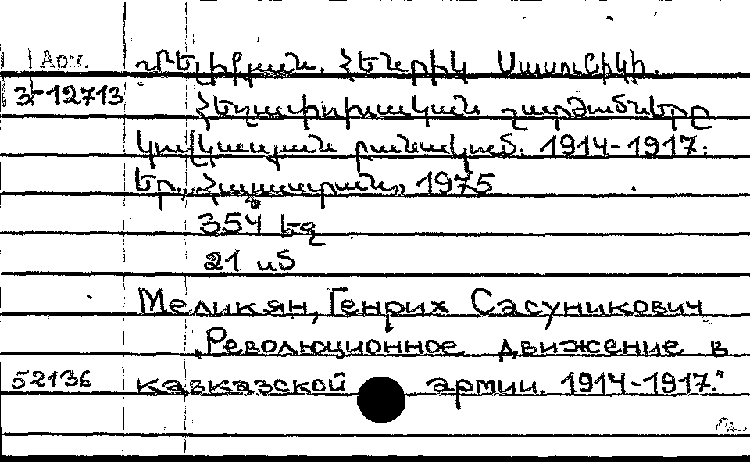 Арм.
Մելիքյան. Հենրիկ Սասունիկի.
3-12713
Հեղափոխական շարժումները
կովկասյան բանակում. 1914-1917:
Եր. „Հայաստան„ 1975
354 եզ
21 սմ
Меликян, Генрих Сасуникович
„Революционное движение в
52136 кавказской армии. 1914-1917."